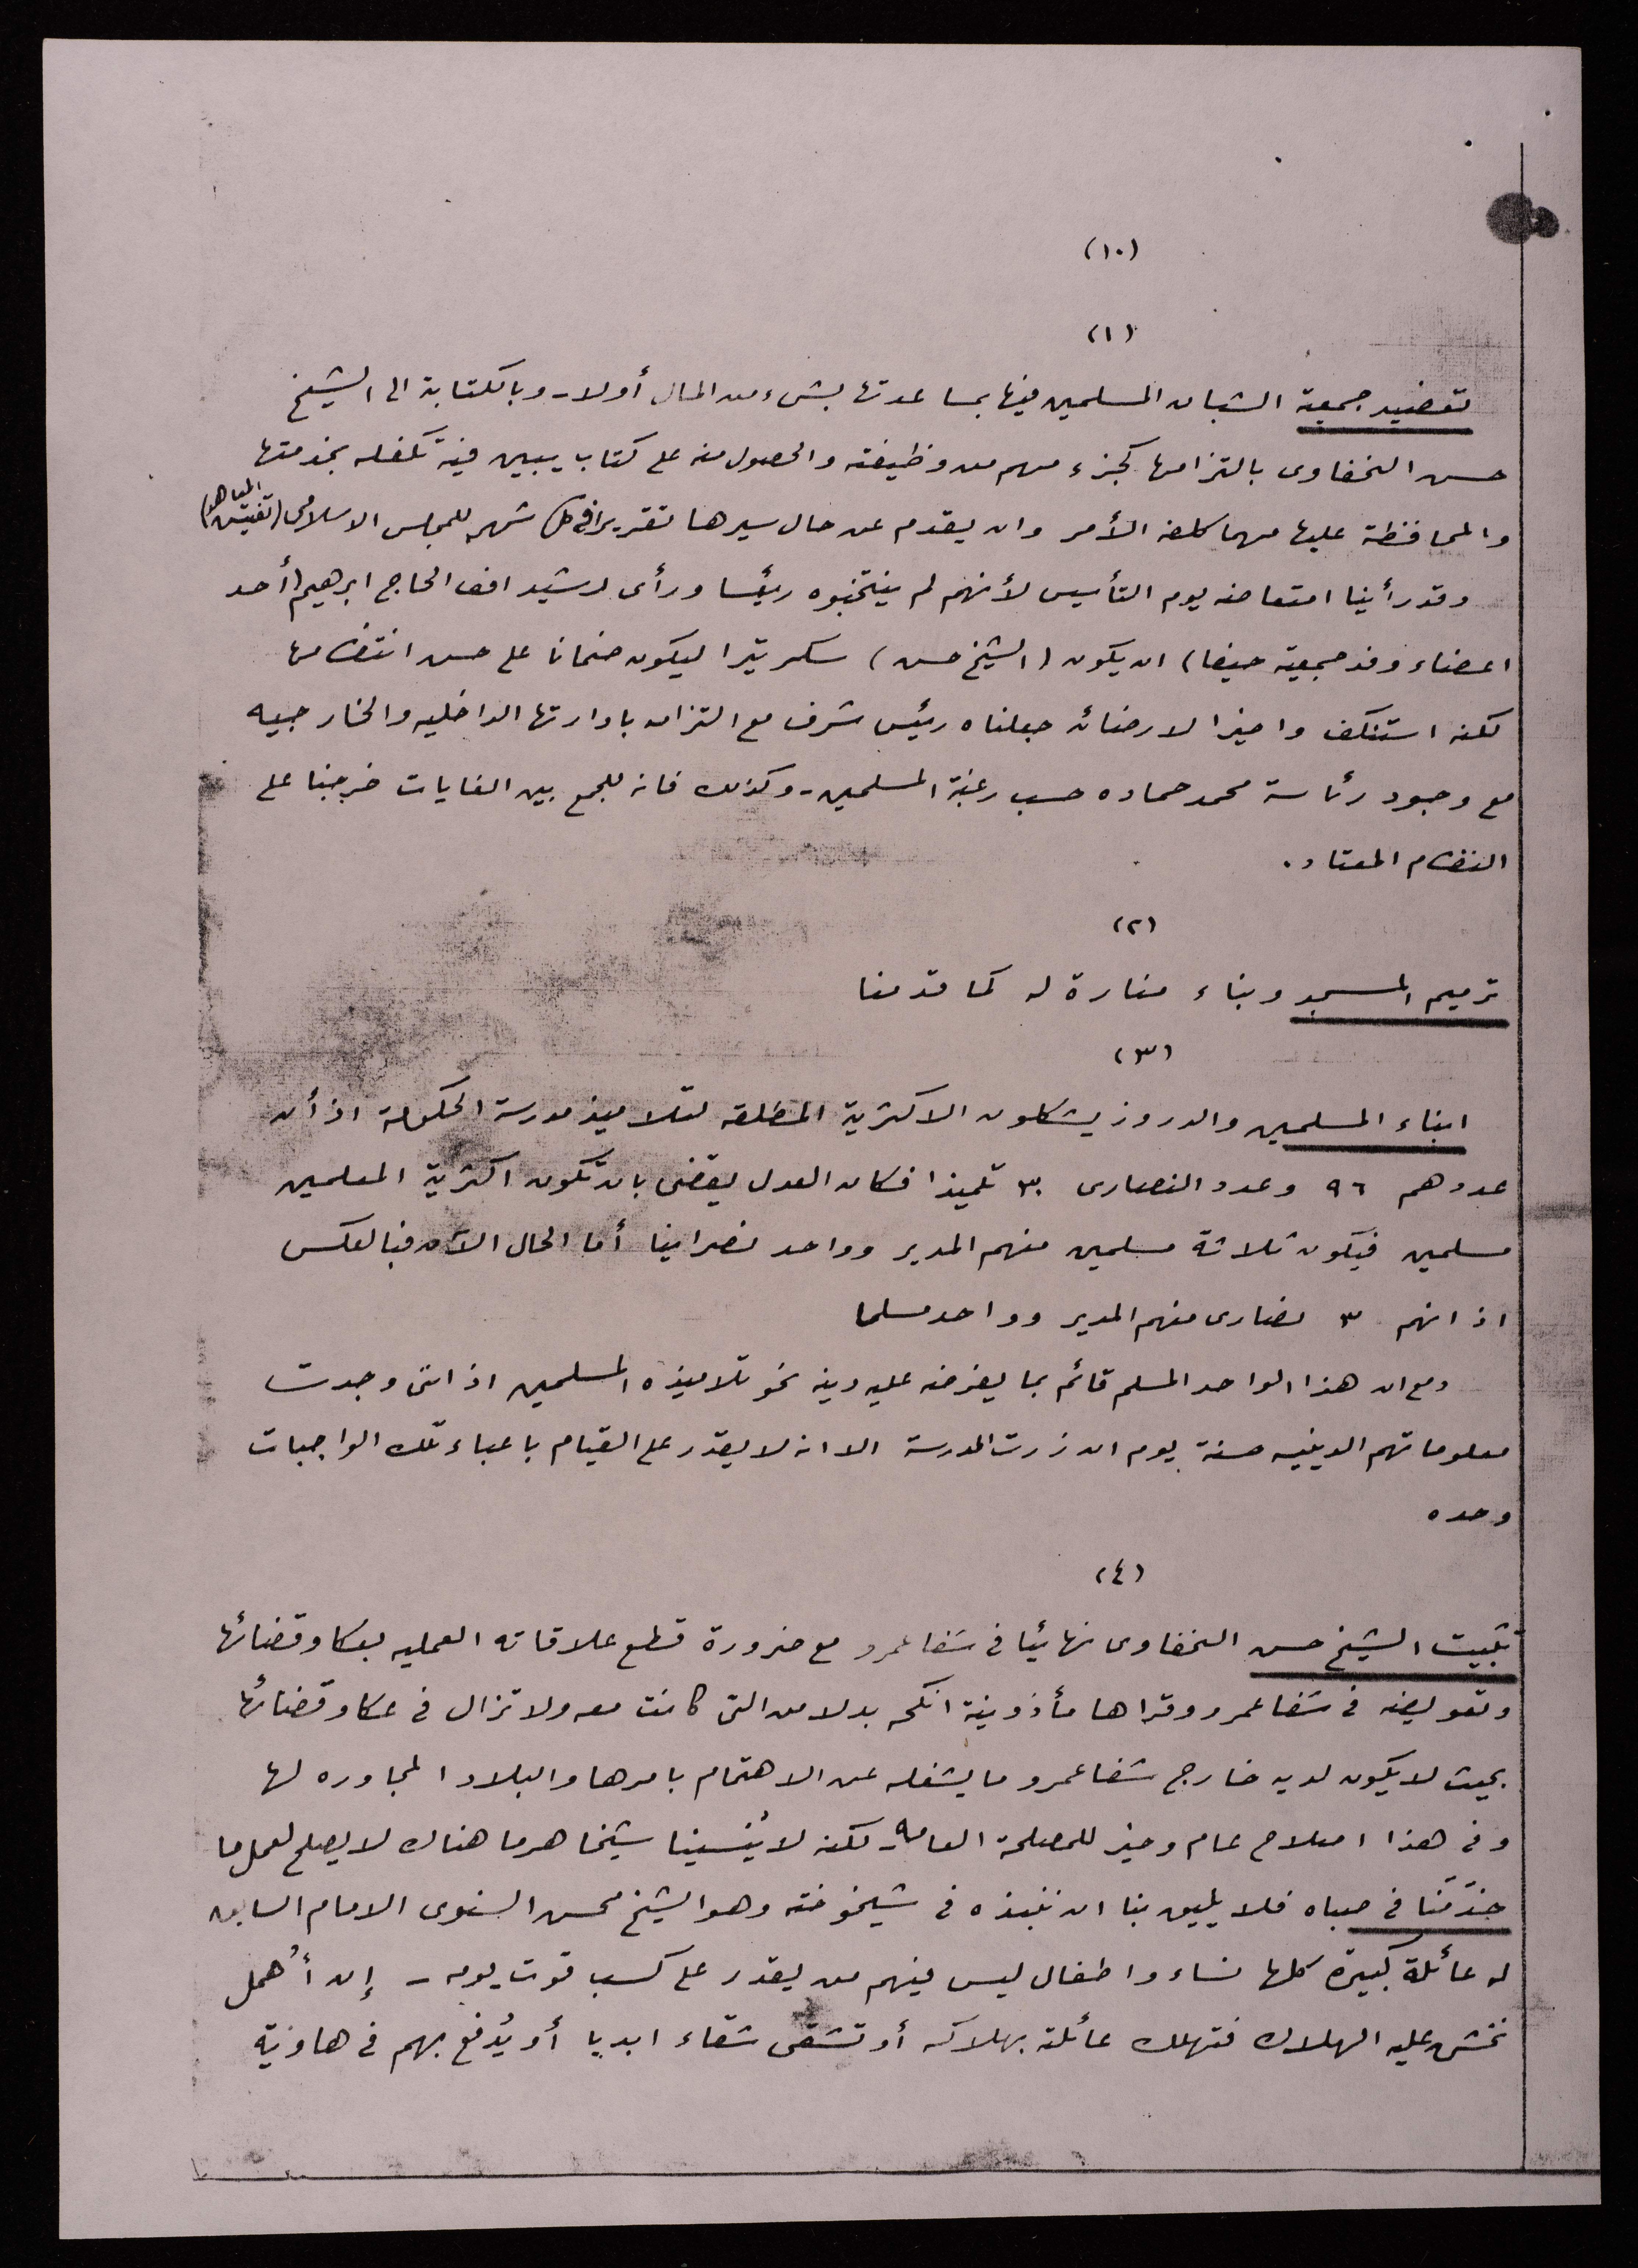 (١٠)
(١)
تعضيد جمعية الشبان المسلمين فيها بمساعدتها بشيء من المال أولا - وبالكتابة الى الشيخ
حسن الخفاوى بالتزامها كجزء مهم من وظيفته والحصول منه على كتاب يبين فيه تكفله بخدمتها
والمحافظة عليها مهما كلفه الأمر وان يقدم عن حال سيرها تقريرا فى كل شهر للمجلس الاسلامى (تفتيش المعاهد)
وقد رأينا امتعاضه يوم التأسيس لأنهم لم ينتخبوه رئيسا ورأى رشيد افندى الحاج ابرهيم (أحد
اعضاء وفد جمعية حيفا) ان يكون (الشيخ حسن) سكرتيرا ليكون ضمانا على حسن انتظامها
لكنه استنكف واخيرا لارضائه جعلناه رئيس شرف مع التزامه بادارتها الداخليه والخارجيه
مع وجود رئاسة محمد حماده حسب رغبة المسلمين - وكذلك فانه للجمع بين الغايات خرجنا على
النظام المعتاد .
(٢)
ترميم المسجد وبناء منارة له كما قدمنا
(٣)
ابناء المسلمين والدروز يشكلون الاكثرية المطلقه لتلاميذ مدرسة الحكومة اذ أن
عددهم ٩٦ وعدد النصارى ٣٠ تلميذا فكان العدل يقضى بان تكون اكثرية المعلمين
مسلمين فيكون ثلاثة مسلمين منهم المدير وواحد نصرانيا أما الحال الآن فبالعكس
اذ انهم ٣ نصارى منهم المدير وواحد مسلما
ومع ان هذا الواحد المسلم قائم بما يفرضه عليه دينه نحو تلاميذه المسلمين اذ اننى وجدت
معلوماتهم الدينيه حسنة يوم ان زرت المدرسة الا انه لا يقدر على القيام باعباء تلك الواجبات
وحده
(٤)
تثبيت الشيخ حسن الخفاوى نهائيا فى شفاعمرو مع ضرورة قطع علاقاته العمليه بعكا وقضائها
وتعويضه فى شفاعمرو وقراها مأذونية انكحه بدلا من التى كانت معه ولا تزال فى عكا وقضائها
بحيث لا يكون لديه خارج شفاعمرو ما يشغله عن الاهتمام بامرها والبلاد المجاوره لها
وفى هذا اصلاح عام وخير للمصلحة العامه - لكنه لا يُنسينا شيخا هرما هناك لا يصلح لعمل ما
خدَمَنا فى صباه فلا يليق بنا ان ننبذه فى شيخوخته وهو الشيخ محسن السنوى الامام السابق
له عائلة كبيرة كلها نساء واطفال ليس فيهم من يقدر على كسب قوت يومه - إن أُهمل
نخشى عليه الهلاك فتهلك عائلة بهلاكه أو تشقى شقاء ابديا أو يُدفع بهم فى هاوية